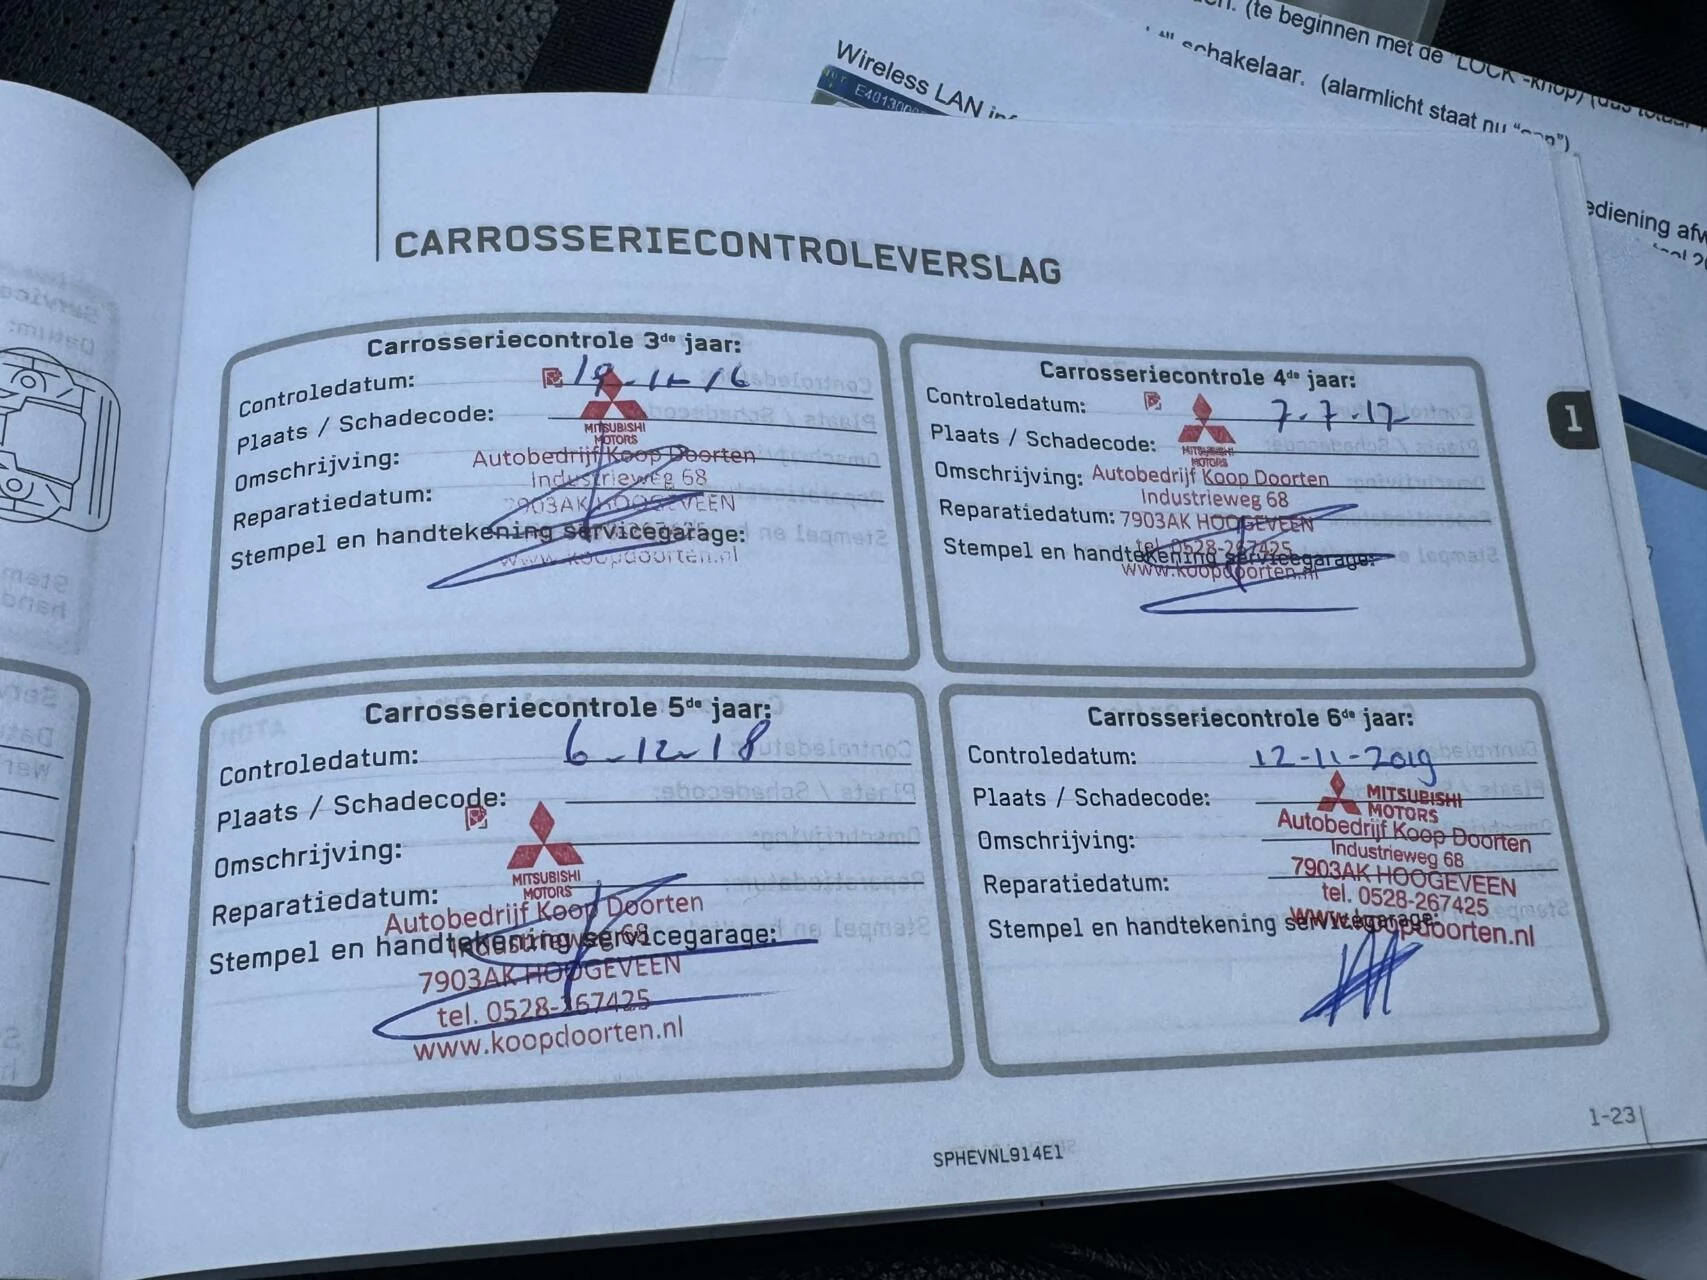 Wireless LAN
(te beginnen met de "LOCK"-knop)
schakelaar. (alarmlicht staat nu
ediening
CARROSSERIECONTROLEVERSLAG
Carrosseriecontrole 3de jaar:
Controledatum:
Plaats / Schadecode:
MITSUBISHI
MOTORS
Omschrijving: Autobedrijf Koop Doorten
Industrieweg 68
Reparatiedatum: 7903AK HOOGEVEEN
Stempel en handtekening servicegarage:
www.koopdoorten.nl
Carrosseriecontrole 4de jaar:
Controledatum: 7-7-17
Plaats / Schadecode:
MITSUBISHI
MOTORS
Omschrijving: Autobedrijf Koop Doorten
Industrieweg 68
Reparatiedatum: 7903AK HOOGEVEEN
tel. 0528-267425
Stempel en handtekening servicegarage:
www.koopdoorten.nl
1
Carrosseriecontrole 5de jaar:
Controledatum: 6-12-18
Plaats / Schadecode:
Omschrijving:
MITSUBISHI
MOTORS
Reparatiedatum:
Autobedrijf Koop Doorten
Industrieweg 68
Stempel en handtekening servicegarage:
7903AK HOOGEVEEN
tel. 0528-267425
www.koopdoorten.nl
Carrosseriecontrole 6de jaar:
Controledatum: 12-11-2019
Plaats / Schadecode:
MITSUBISHI
MOTORS
Autobedrijf Koop Doorten
Omschrijving:
Industrieweg 68
7903AK HOOGEVEEN
Reparatiedatum:
tel. 0528-267425
Stempel en handtekening servicegarage:
www.koopdoorten.nl
1-23
SPHEVNL914E1